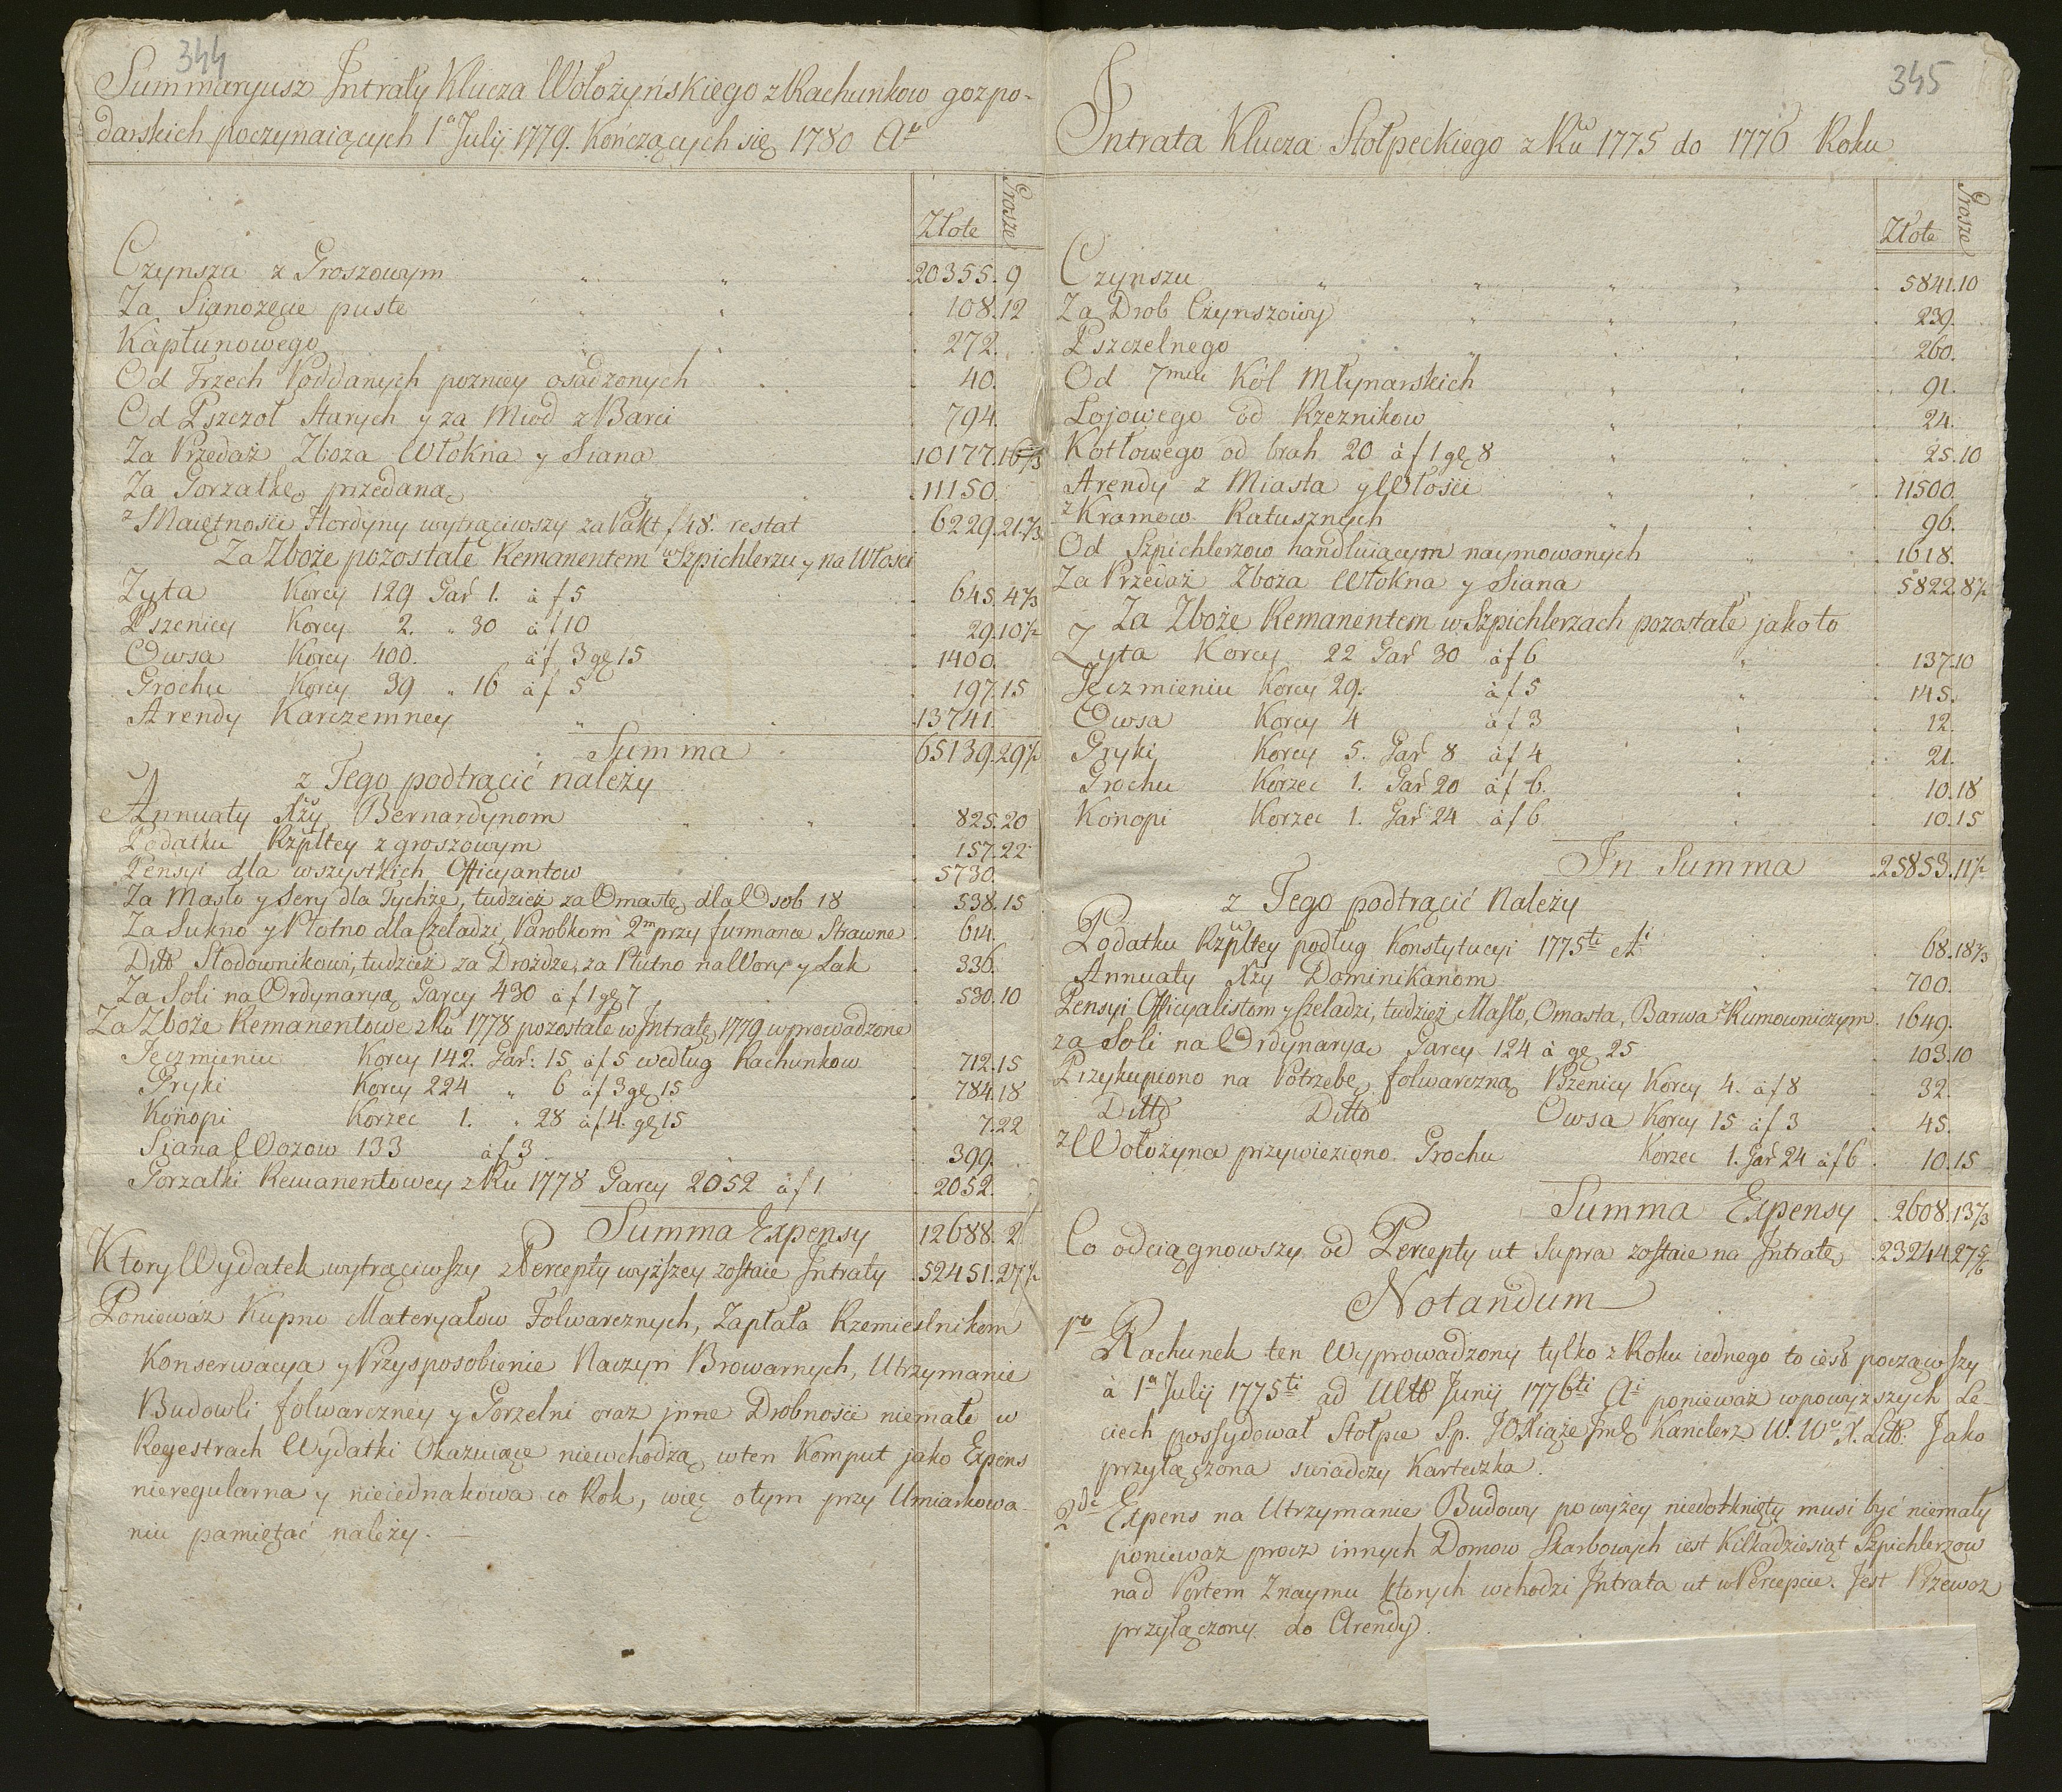 344
Summaryusz Intraty Klucza Wołożyńskiego z Rachunkow gozpo-
darskich poczynaiących 1ª Julij 1779. Kończących się 1780 Aº
Złote Grosze
Czynsza z Groszowym 20355. 9
Za Sianożęcie puste 108. 12
Kapłunowego 272.
Od Trzech Poddanych pozniey osadzonych 40.
Od Pszczoł Starych y za Miod z Barci 794.
Za Przedaż Zboża Włokna y Siana 10177. 16⅔
Za Gorzałkę przedaną 11150.
z Maiętności Hordyny wytrąciwszy za Pakt f 48. restat 6229. 21⅓
Za Zboże pozostałe Remanentem w Szpichlerzu y na Włości
Zyta Korcy 129 Gar̃ 1. à f 5 645. 4⅓
Pszenicy Korcy 2. " 30 à f 10 29. 10½
Owsa Korcy 400. à f 3 gę 15 1400.
Grochu Korcy 39 " 16 à f 5 197. 15
Arendy Karczemney 13741.
Summa 65139. 29½
z Tego podtrącić należy
Annuaty Xży Bernardynom 825. 20
Podatku Rzpltey z groszowym 157. 22
Pensyi dla wszystkich Officyantow 5730.
Za Masło y Sery dla Tychże, tudzież za Omastę dla Osob 18 538. 15
Za Sukno y Płotno dla Czeladzi, Parobkom 2m przy furmance Strawne 614.
Ditto Słodownikowi, tudzież za Drożdże, za Płutno na Wory y Lak 336.
Za Soli na Ordynaryą Garcy 430 à f 1 gę 7 530. 10
Za Zboże Remanentowe z Ru 1778 pozostałe w Intratę 1779 wprowadzone
Jęczmieniu Korcy 142. Gar̃: 15 à f 5 według Rachunkow 712. 15
Gryki Korcy 224 " 6 à f 3 gę 15 784. 18
Konopi Korzec 1. " 28 à f 4. gę 15 7. 22
Siana Wozow 133 à f 3 399.
Gorzałki Remanentowey z Ru 1778 Garcy 2052 à f 1 2052.
Summa Expensy 12688. 2
Ktory Wydatek wytrąciwszy z Percepty wyższey zostaie Intraty 52451. 27½
Ponieważ Kupno Materyałow Folwarcznych, Zapłata Rzemieslnikom
Konserwacya y Przysposobienie Naczyń Browarnych, Utrzymanie
Budowli folwarczney y Gorzelni oraz jnne Drobności niemałe w
Regestrach Wydatki Okazuiące niewchodzą w ten Komput jako Expens
nieregularna y nieiednakowa co Rok, więc otym przy Umiarkowa-
niu pamiętać należy.
345
Intrata Klucza Stołpeckiego z Ru 1775 do 1776 Roku
Złote Grosze
Czynszu 5841. 10
Za Drob Czynszowy 239.
Pszczelnego 260.
Od 7miu Kół Młynarskich 91.
Łojowego od Rzeznikow 24.
Kotłowego od brah 20 à f 1 gę 8 25. 10
Arendy z Miasta y Włości 11500.
z Kramow Ratusznych 96.
Od Szpichlerzow handluiącym naymowanych 1618.
Za Przedaż Zboża Włokna y Siana 5822. 8½
Za Zboże Remanentem w Szpichlerzach pozostałe jako to
Zyta Korcy 22 Gar̃ 30 à f 6 137. 10
Jęczmieniu Korcy 29. à f 5 145.
Owsa Korcy 4 à f 3 12.
Gryki Korcy 5. Gar̃ 8 à f 4 21.
Grochu Korzec 1. Gar̃ 20 à f 6. 10. 18
Konopi Korzec 1. Gar̃ 24 à f 6 10. 15
In Summa 25853. 11½
z Tego podtrącić Należy
Podatku Rzpltey podług Konstytucyi 1775ti Ai 68. 18⅔
Annuaty Xży Dominikanom 700.
Pensyi Officyalistom y Czeladzi, tudzież Masło, Omasta, Barwa z Kumowniczym 1649.
za Soli na Ordynaryą Garcy 124 à gę 25 103. 10
Przykupiono na Potrzebę folwarczną Pszenicy Korcy 4. à f 8 32.
Ditto Ditto Owsa Korcy 15 à f 3 45.
z Wołożyna przywieziono Grochu Korzec 1. Gar̃ 24 à f 6 10. 15
Summa Expensy 2608. 13⅔
Co odciągnowszy od Percepty ut Supra zostaie na Intratę 23244. 27⅚
Notandum
1º Rachunek ten Wyprowadzony tylko z Roku iednego to iest począwszy
à 1ª Julij 1775ti ad Ultã Junij 1776ti Ai ponieważ w powyższych Le-
ciech possydował Stołpie S.p. JO Xiąże Jmć Kanclerz W. W. X. Litt. Jako
przyłączona swiadczy Karteczka.
2do Expens na Utrzymanie Budowy powyżey niedotknięty musi być niemały
ponieważ procz innych Domow Skarbowych iest Kilkadziesiąt Szpichlerzow
nad Portem z naymu ktorych wchodzi Intrata ut w Percepcie. Jest Przewoz
przyłączony do Arendy.